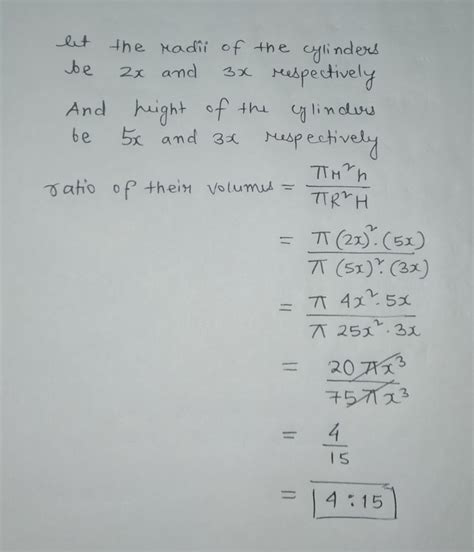 let the radii of the cylinders
be 2x and 3x respectively
And height of the cylinders
be 5x and 3x respectively
ratio of their volumes = πr²h / πR²H
= π(2x)².(5x) / π(5x)².(3x)
= π 4x².5x / π 25x².3x
= 20πx³ / 75πx³
= 4 / 15
= 4:15